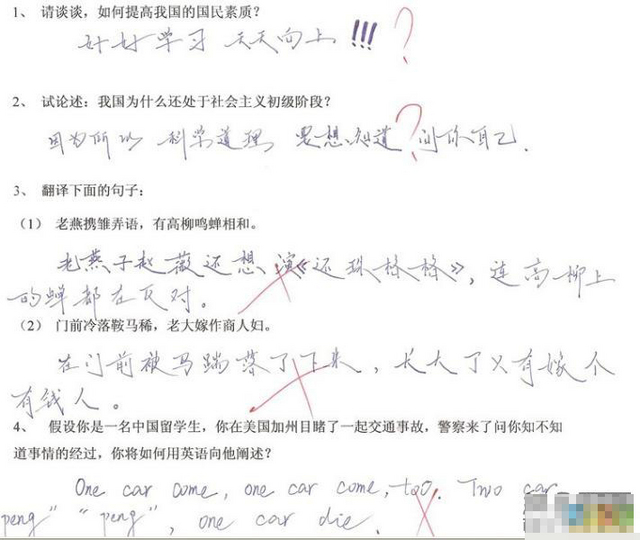 1、 请谈谈，如何提高我国的国民素质？
好好学习 天天向上 !!! ?
2、 试论述：我国为什么还处于社会主义初级阶段？
因为所以 科学道理 要想知道 ? 问你自己.
3、 翻译下面的句子：
（1） 老燕携雏弄语，有高柳鸣蝉相和。
老燕子赵薇还想演《还珠格格》，连高柳上
的蝉都在反对。
（2） 门前冷落鞍马稀，老大嫁作商人妇。
在门前被马踹落了下来，长大了只有嫁个
有钱人。
4、 假设你是一名中国留学生，你在美国加州目睹了一起交通事故，警察来了问你知不知
道事情的经过，你将如何用英语向他阐述？
One car come, one car come, too. Two car
peng” “peng”, one car die.